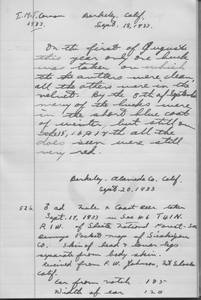 E.M.T. Cannon
1933.
Berkeley, Calif.
Sept. 18, 1933.
On the first of August
this year only one buck
was taken on which
the antlers were clean,
all the others were in the
velvet. By the 5th of September
many of the bucks were
in the short blue coat
of winter but still on
Sept. 15, 16, & 17th all the
does seen were still
very red.
Berkeley, Alameda Co. Calif.
Sept. 20, 1933
526. Coast deer taken
Sept. 17, 1933 in Sec T41N.
R1W. of Shasta National Forest.
of Siskiyou
Co. Skin of head & lower legs
separate from body skin.
Received from P.W. Johnson,
Calif.
Ear from notch 185
Width of ear 120